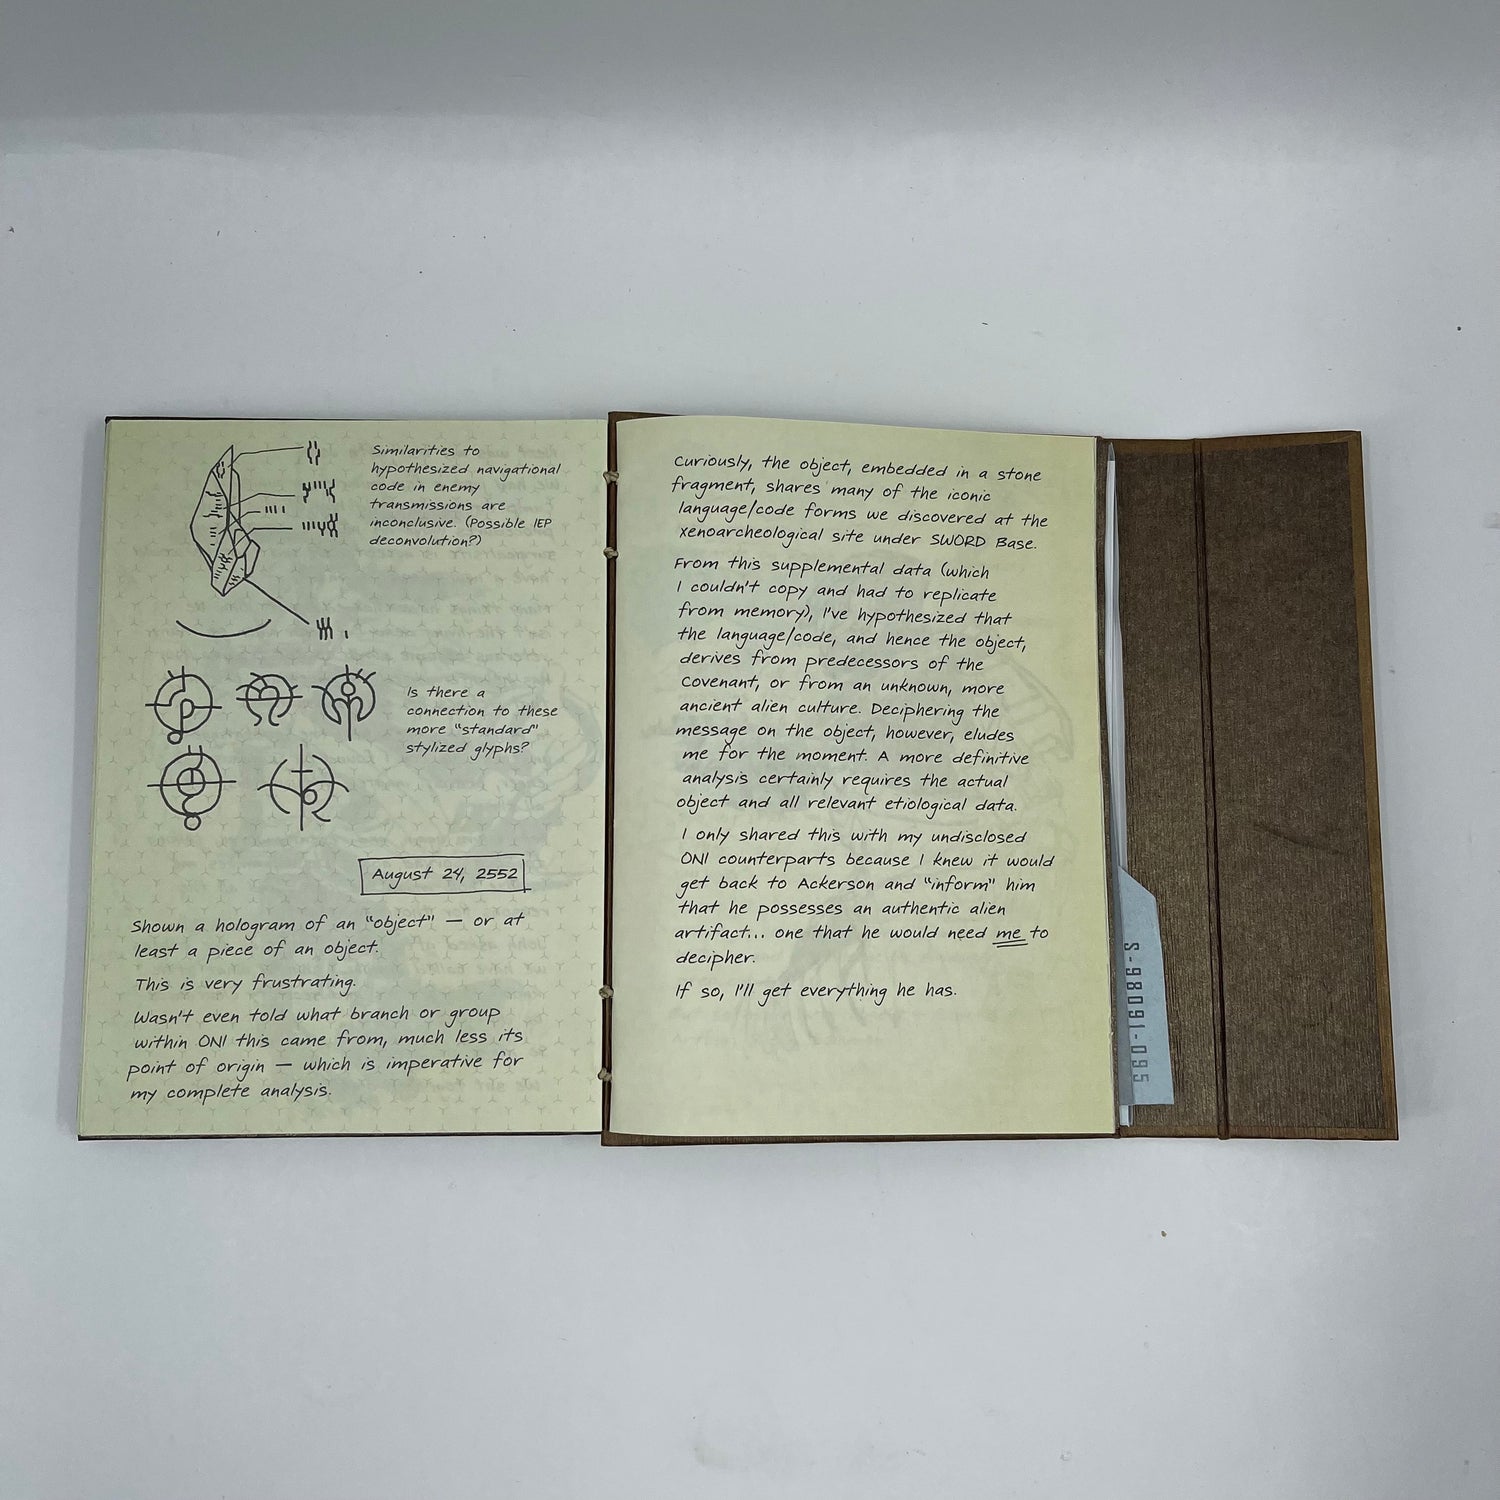 Similarities to
hypothesized navigational
code in enemy
transmissions are
inconclusive. (Possible IEP
deconvolution?)
Is there a
connection to these
more "standard"
stylized glyphs?
August 24, 2552
Shown a hologram of an "object" — or at
least a piece of an object.
This is very frustrating.
Wasn't even told what branch or group
within ONI this came from, much less its
point of origin — which is imperative for
my complete analysis.
Curiously, the object, embedded in a stone
fragment, shares many of the iconic
language/code forms we discovered at the
xenoarcheological site under SWORD Base.
From this supplemental data (which
I couldn't copy and had to replicate
from memory), I've hypothesized that
the language/code, and hence the object,
derives from predecessors of the
Covenant, or from an unknown, more
ancient alien culture. Deciphering the
message on the object, however, eludes
me for the moment. A more definitive
analysis certainly requires the actual
object and all relevant etiological data.
I only shared this with my undisclosed
ONI counterparts because I knew it would
get back to Ackerson and "inform" him
that he possesses an authentic alien
artifact... one that he would need me to
decipher.
If so, I'll get everything he has.
S-98091-095